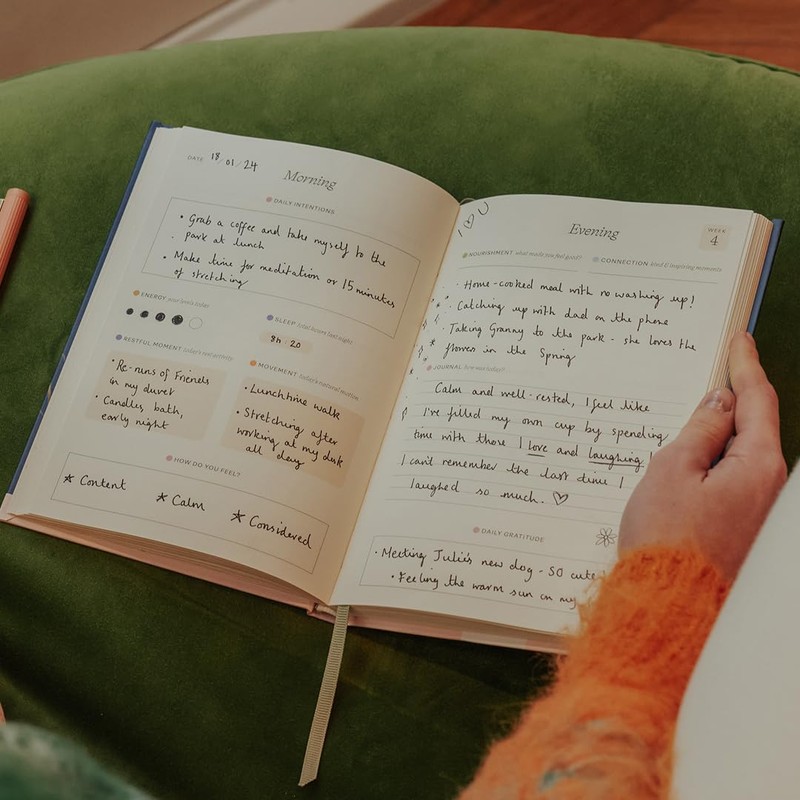 DATE 18/01/24
Morning
DAILY INTENTIONS
• Grab a coffee and take myself to the
park at lunch
• Make time for meditation or 15 minutes
of stretching
ENERGY your levels today
SLEEP total hours last night
8h 20
RESTFUL MOMENT today's rest activity
• Re-runs of Friends
in my duvet
• Candles, bath,
early night
MOVEMENT today's natural motion
• Lunchtime walk
• Stretching after
working at my desk
all day
HOW DO YOU FEEL?
* Content
* Calm
* Considered
I ♡ U
Evening
WEEK
4
NOURISHMENT what made you feel good?
CONNECTION kind & inspiring moments
· Home-cooked meal with no washing up!
· Catching up with dad on the phone
· Taking Granny to the park - she loves the
flowers in the Spring
JOURNAL
Calm and well-rested, I feel like
I've filled my own cup by spending
time with those I love and laughing!
I can't remember the last time I
laughed so much. ♡
DAILY GRATITUDE
• Meeting Julie's new dog - SO cute
• Feeling the warm sun on my